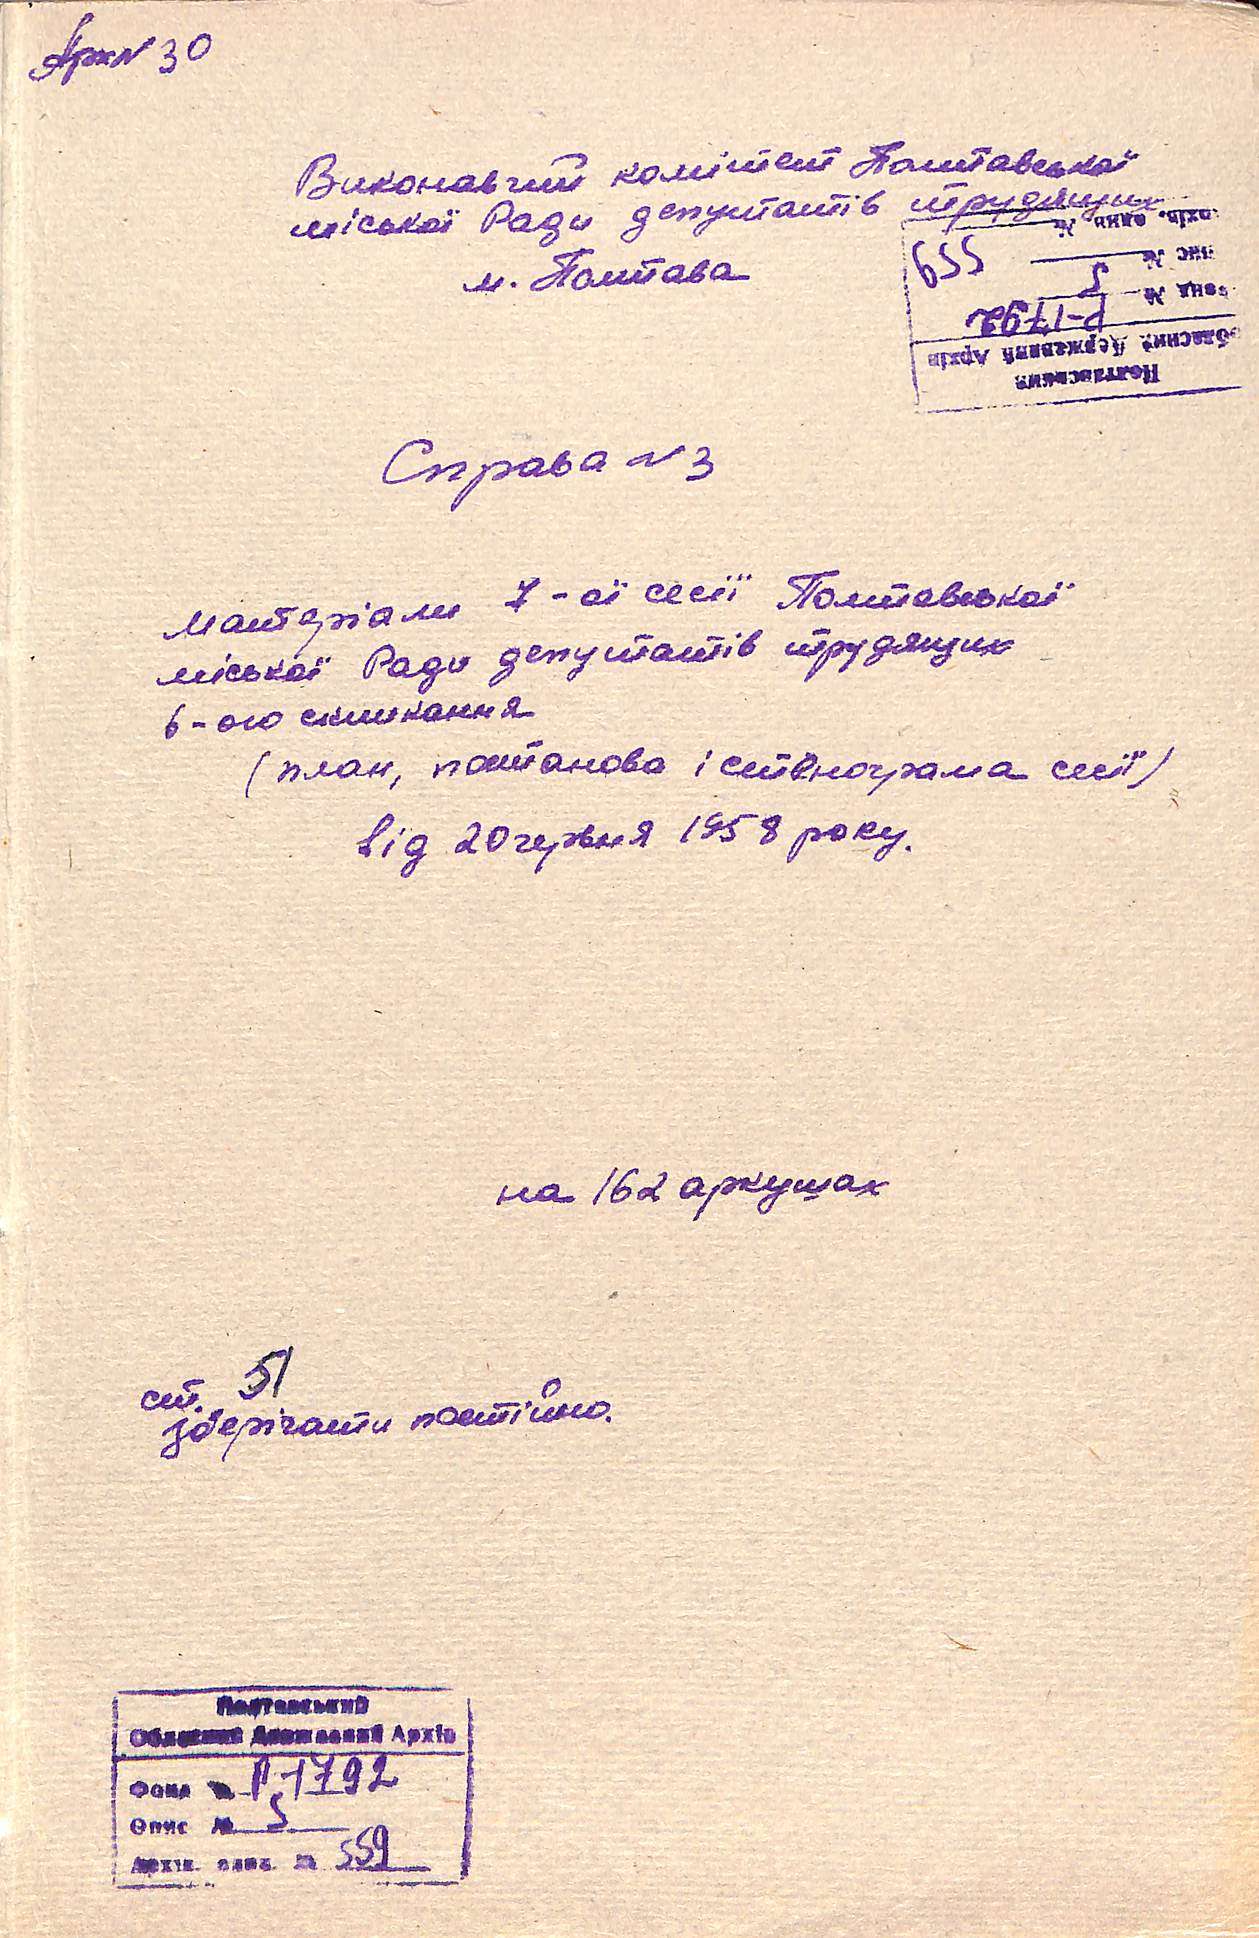 Арк N 30
Виконавчий комітет Полтавської
міської Ради депутатів трудящих
м. Полтава
Полтавський
Обласний Державний Архів
Фонд № Р-1792
Опис № 5
Архів. один. № 559
Справа N 3
Матеріали 7-ої сесії Полтавської
міської Ради депутатів трудящих
6-ого скликання
(план, постанова і стенограма сесії)
від 20 червня 1958 року.
на 162 аркушах
ст. 51
зберігати постійно.
Полтавський
Обласний Державний Архів
Фонд № Р-1792
Опис № 5
Архів. один. № 559